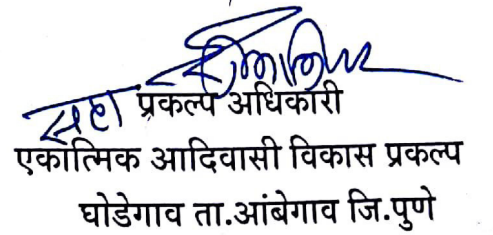 सहा प्रकल्प अधिकारी
एकात्मिक आदिवासी विकास प्रकल्प
घोडेगाव ता.आंबेगाव जि.पुणे